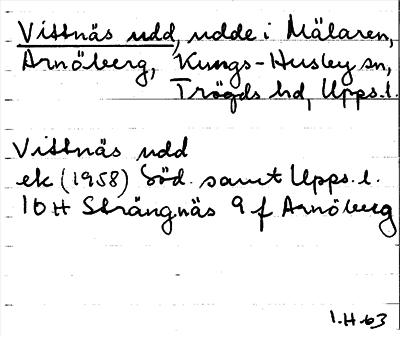 Vittnäs udd, udde i Mälaren,
Arnöberg, Kungs-Husby sn,
Trögds hd, Upps. l.
Vittnäs udd
ek (1958) Söd. samt Upps. l.
10 H Strängnäs 9 f Arnöberg
I. H. 63